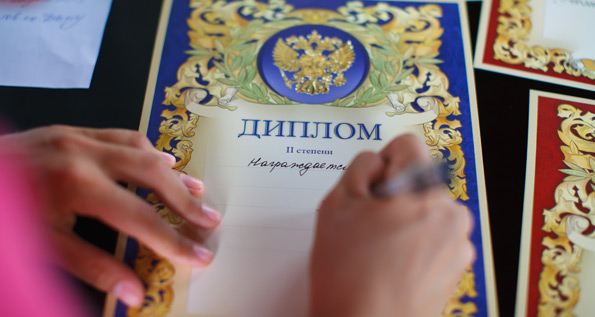 ДИПЛОМ
II степени
Награждается